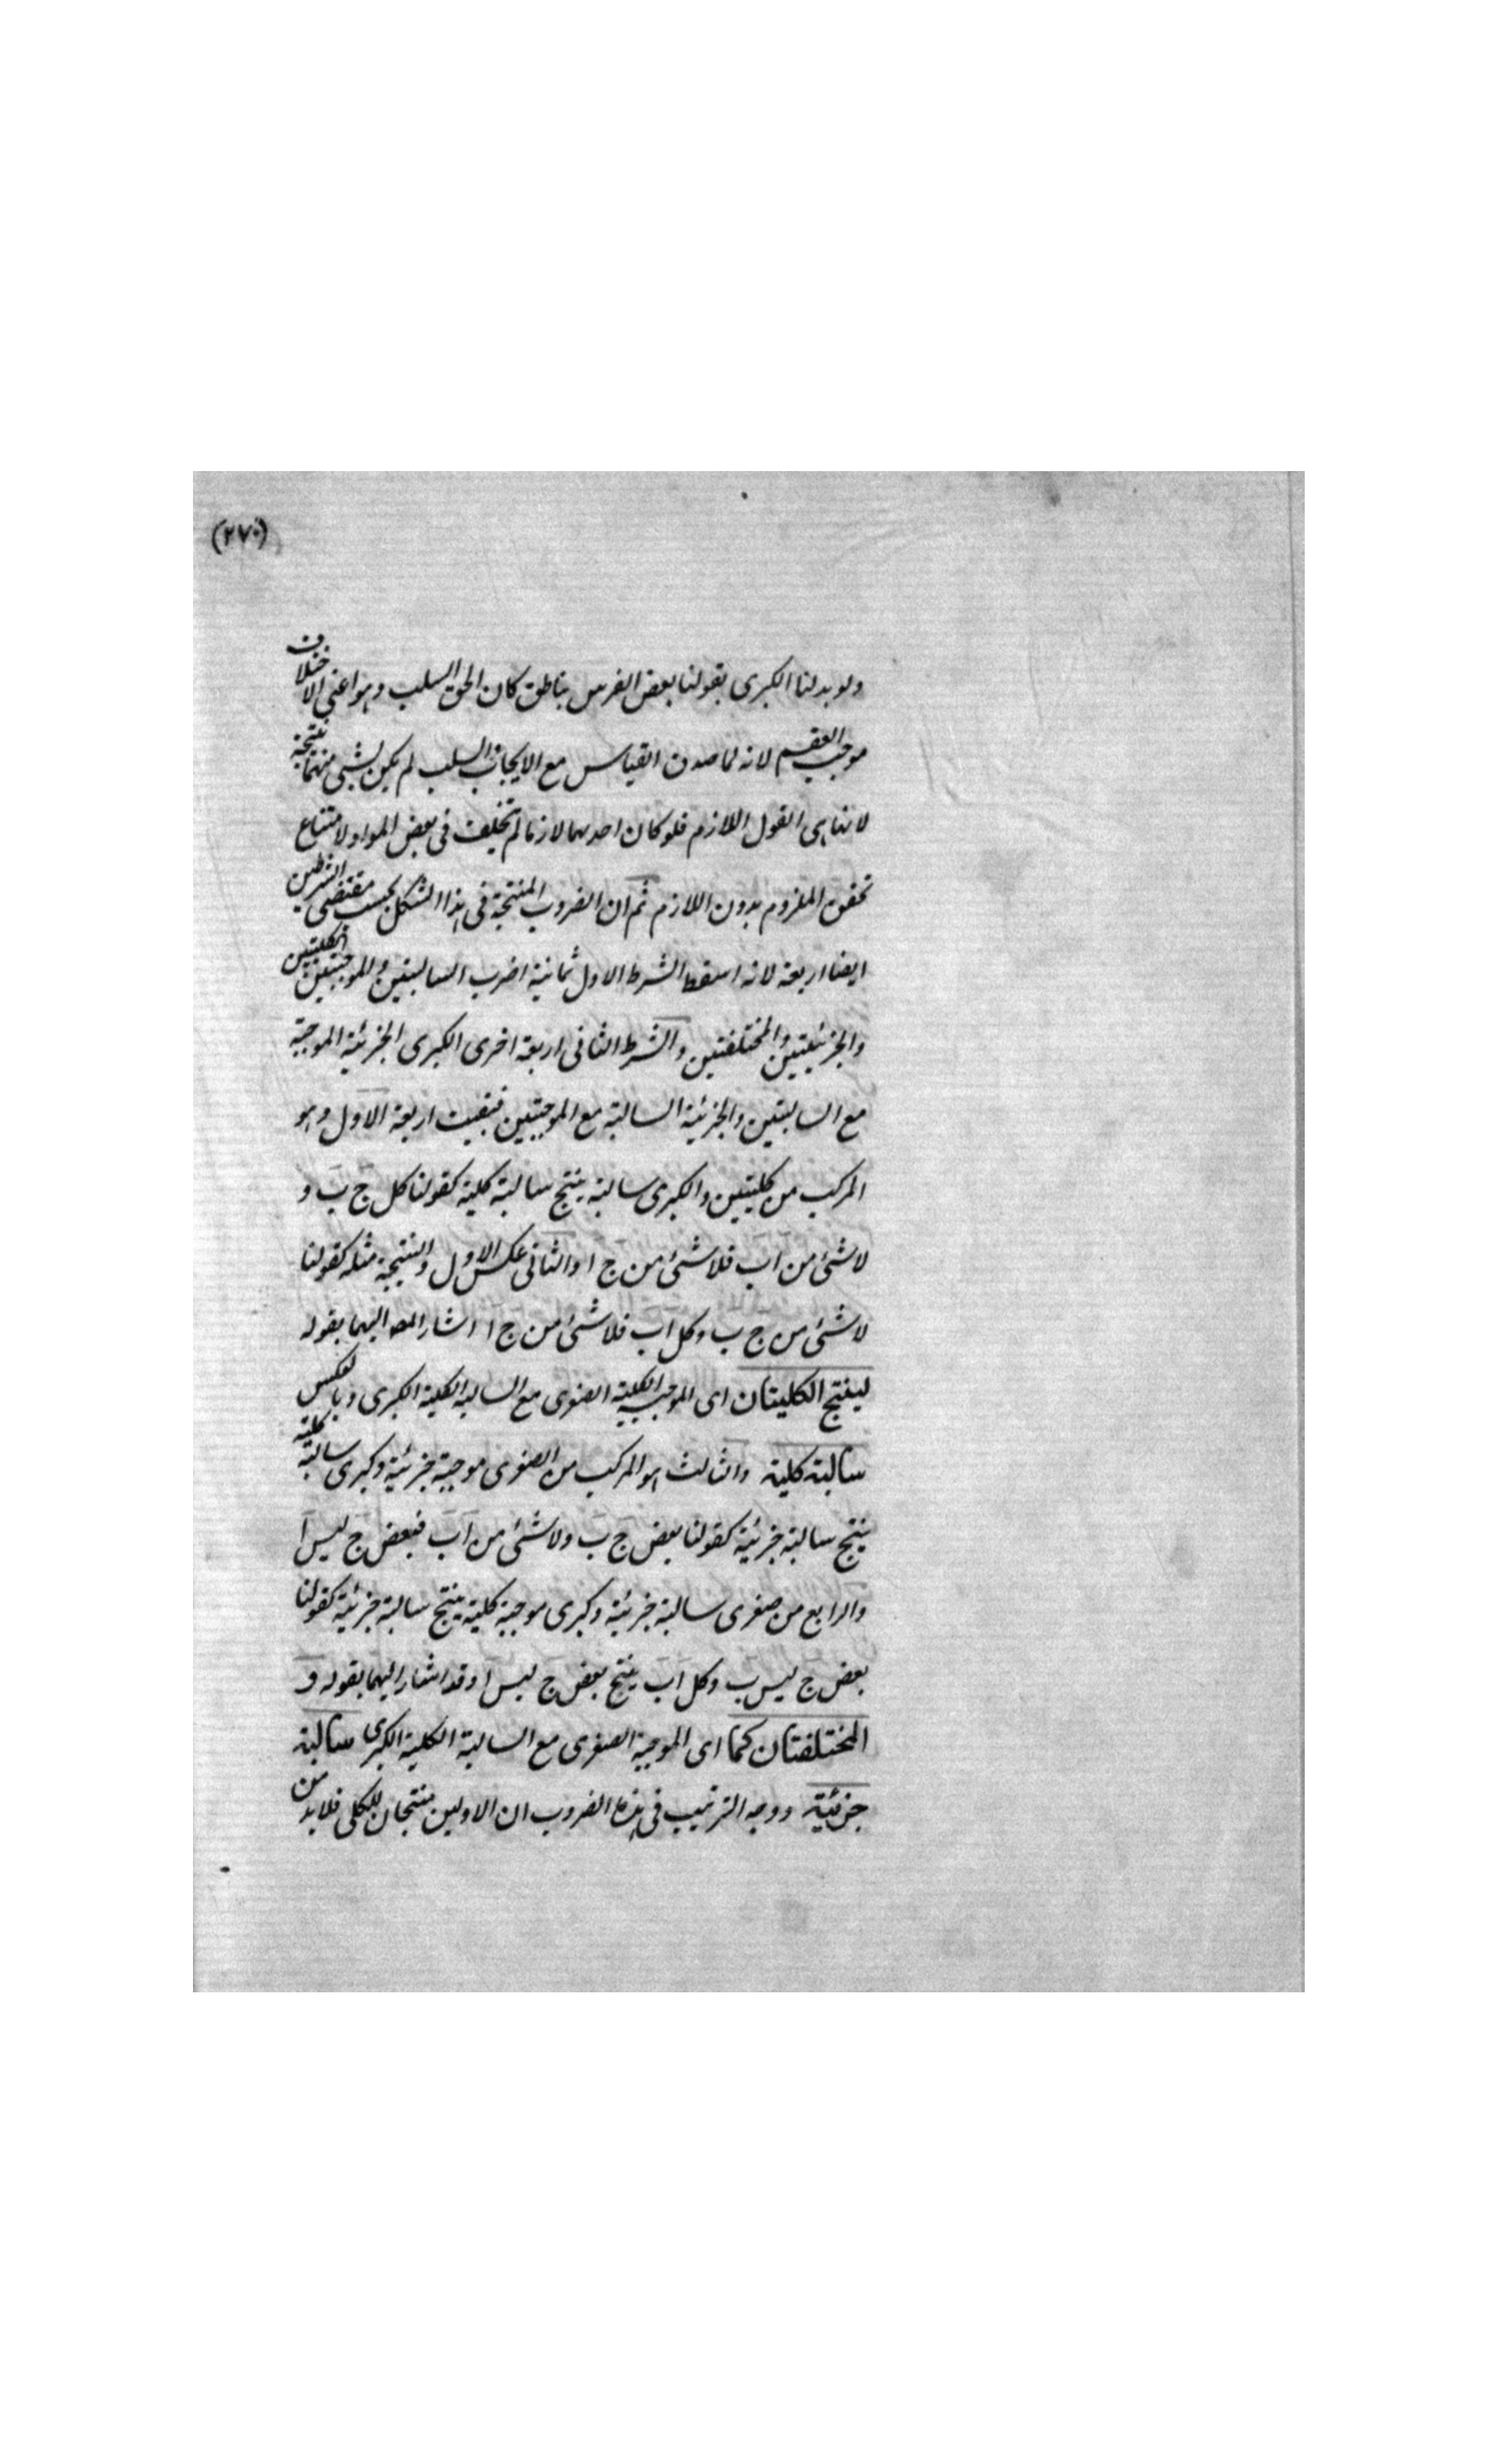 (٢٧٠)
ولو بدلنا الكبرى بقولنا بعض الفرس بناطق كان الحق السلب وهو اعنى الاختلاف
موجب العقم لانه لما صدق القياس مع الايجاب والسلب لم يكن لشئ منهما نتيجة
لانها هى القول اللازم فلو كان احدهما لازما لم تخلف فى بعض المواد لامتناع
تحقق الملزوم بدون اللازم ثم ان الضروب المنتجة فى هذا الشكل بحسب مقتضى الشرطين
ايضا اربعة لانه اسقط الشرط الاول ثمانية اضرب السالبتين والموجبتين الكليتين
والجزئيتين والمختلفتين والشرط الثانى اربعة اخرى الكبرى الجزئية الموجبة
مع السالبتين والجزئية السالبة مع الموجبتين فبقيت اربعة الاول وهو
المركب من كليتين والكبرى سالبة ينتج سالبة كلية كقولنا كل ج ب و
لا شئ من ا ب فلا شئ من ج ا والثانى عكس الاول والنتيجة مثله كقولنا
لا شئ من ج ب وكل ا ب فلا شئ من ج ا اشار المصـ اليهما بقوله
لينتج الكليتان اى الموجبة الكلية الصغرى مع السالبة الكلية الكبرى وبالعكس
سالبة كلية والثالث هو المركب من الصغرى موجبة جزئية وكبرى سالبة كلية
ينتج سالبة جزئية كقولنا بعض ج ب ولا شئ من ا ب فبعض ج ليس ا
والرابع من صغرى سالبة جزئية وكبرى موجبة كلية ينتج سالبة جزئية كقولنا
بعض ج ليس ب وكل ا ب ينتج بعض ج ليس ا وقد اشار اليهما بقوله و
المختلفتان كما اى الموجبة الصغرى مع السالبة الكلية الكبرى سالبة
جزئية ووجه الترتيب فى هذه الضروب ان الاولين منتجان للكلى فلا بد من